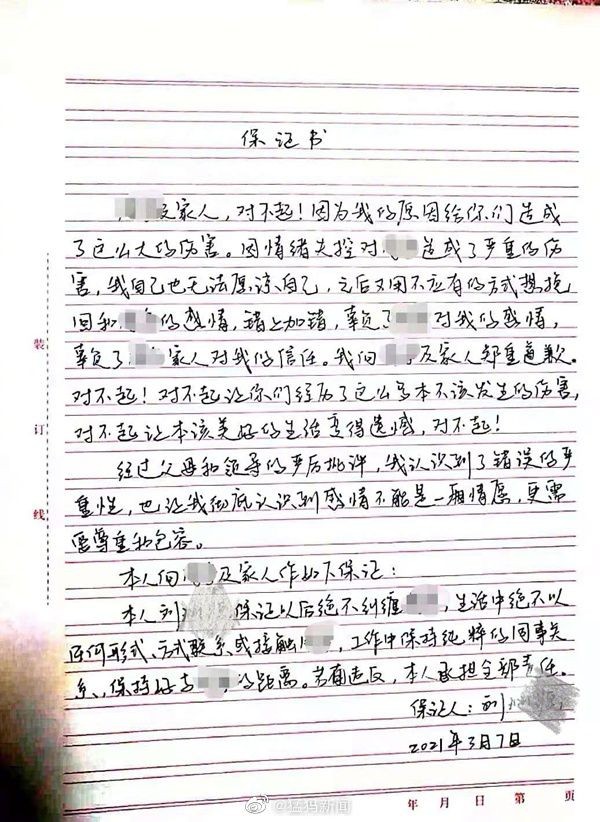 保证书
及家人，对不起！因为我的原因给你们造成
了这么大的伤害。因情绪失控对 造成了严重的伤
害，我自己也无法原谅自己，之后又用不应有的方式想挽
回和 的感情，错上加错，辜负了 对我的感情，
辜负了 家人对我的信任。我向 及家人郑重道歉。
对不起！对不起让你们经历了这么多本不该发生的伤害，
对不起让本该美好的生活变得遗憾，对不起！
经过父母和领导的严厉批评，我认识到了错误的严
重性，也让我彻底认识到感情不能是一厢情愿，更需
要尊重和包容。
本人向 及家人作如下保证：
本人刘 保证以后绝不纠缠 ，生活中绝不以
任何形式、方式联系或接触 ，工作中保持纯粹的同事关
系，保持好与 的距离。若有违反，本人承担全部责任。
保证人：刘
2021年3月7日
装
订
线
年 月 日 第 页
@猛犸新闻